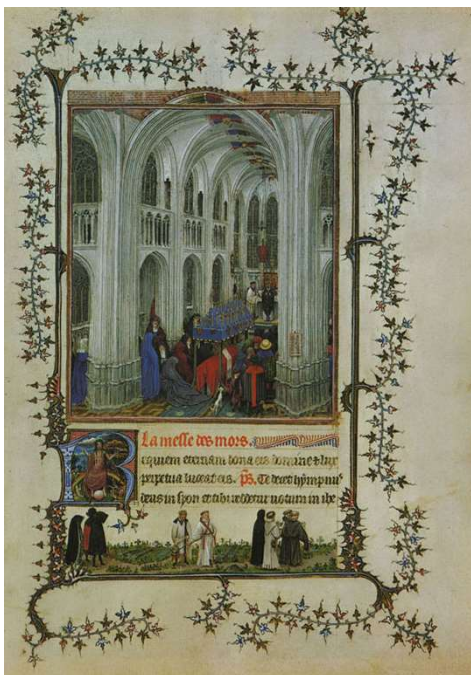 La messe des mors.
Requiem eternam dona eis domine & lux
perpetua luceat eis. ps. Te decet hympnus
deus in syon et tibi reddetur votum in ihe